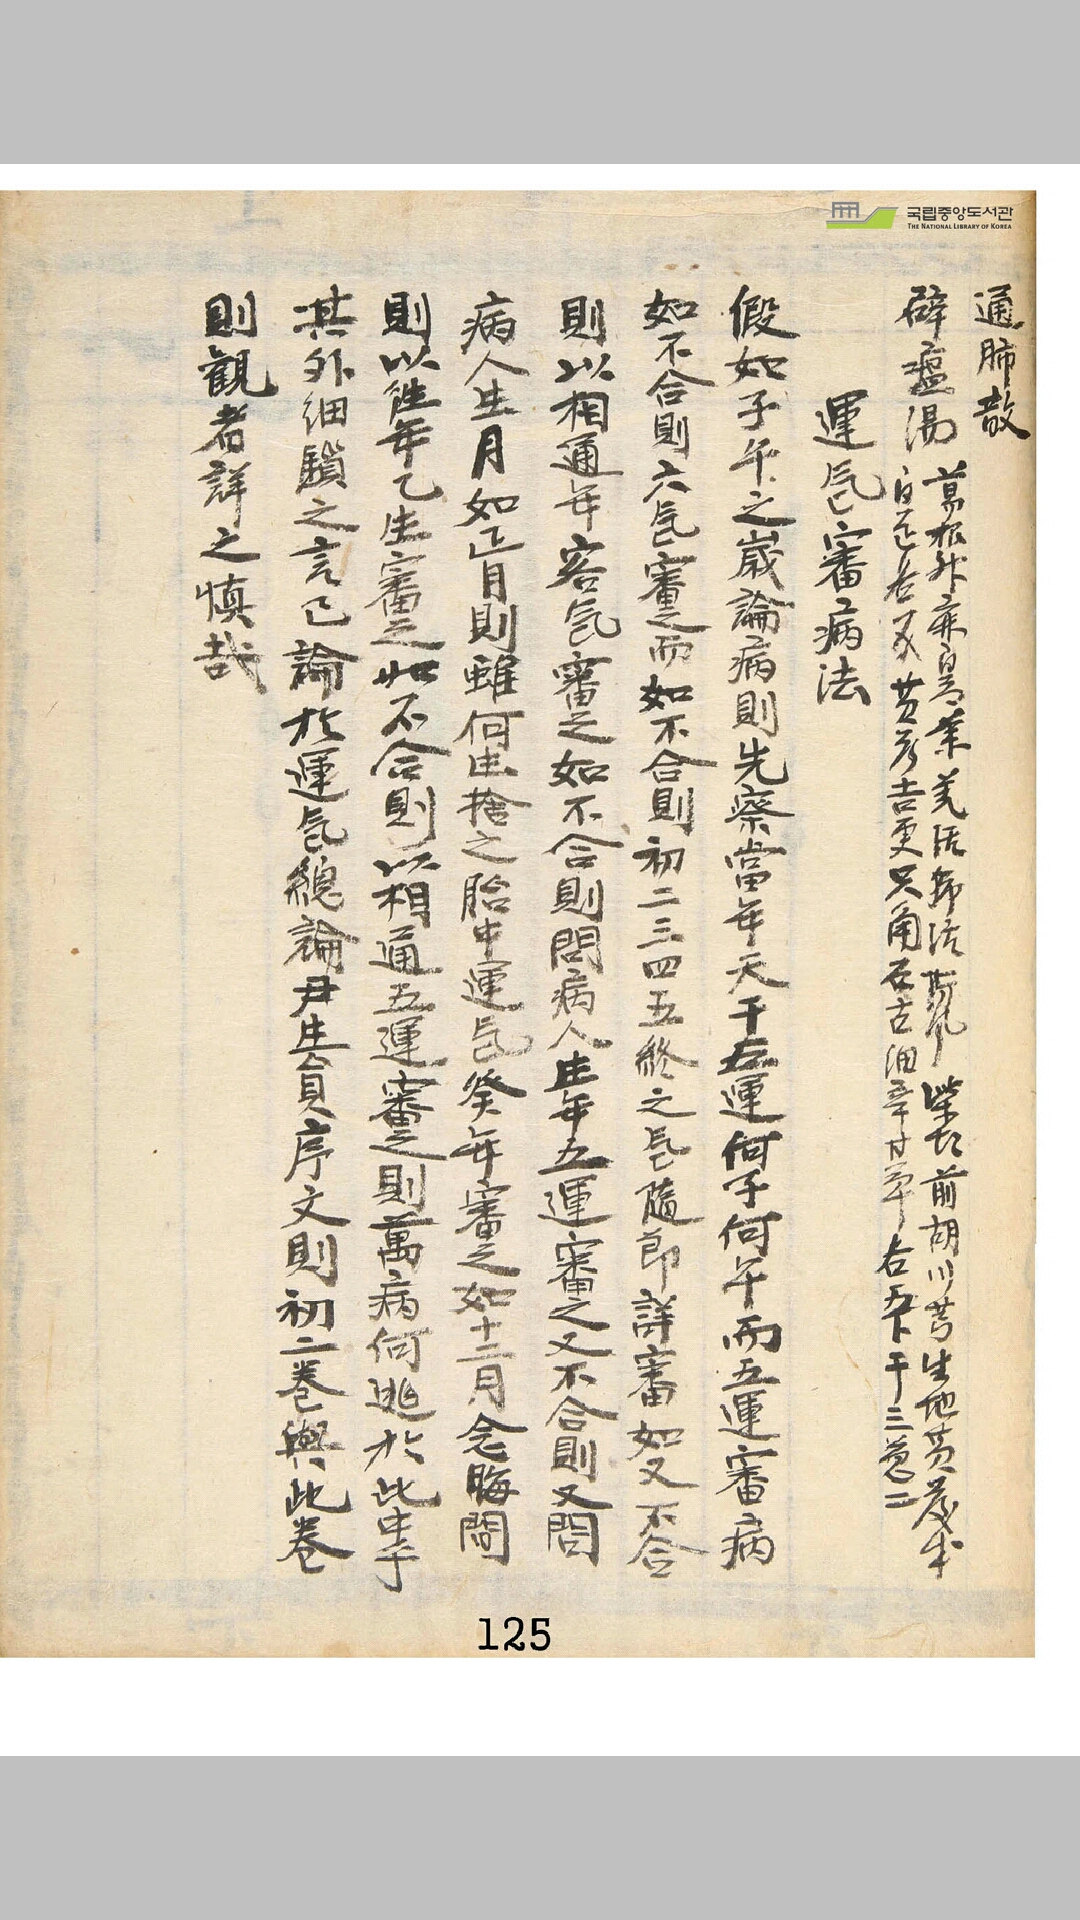 국립중앙도서관
THE NATIONAL LIBRARY OF KOREA
通肺散
辟瘟湯 葛根 升麻 羌活 柴胡 前胡 川芎 生地黃
白芷 黃芩 吉更 只角 石古 細辛 甘草 右 干三 二
運気審病法
假如子午之歲論病則先察當年天干五運何子何午而五運審病
如不合則六気審之而如不合則初二三四五終之気隨節詳審如又不合
則以相通年客気審之如不合則問病人生年五運審之又不合則又問
病人生月如正月則雖何生捨之胎中運気癸年審之如十二月念晦間
則以徃年乙生審之如不合則以相通五運審之則萬病何逃於此
其外細鎖之言已論於運気總論尹生員序文則初二卷與此卷
則観者詳之慎哉
125